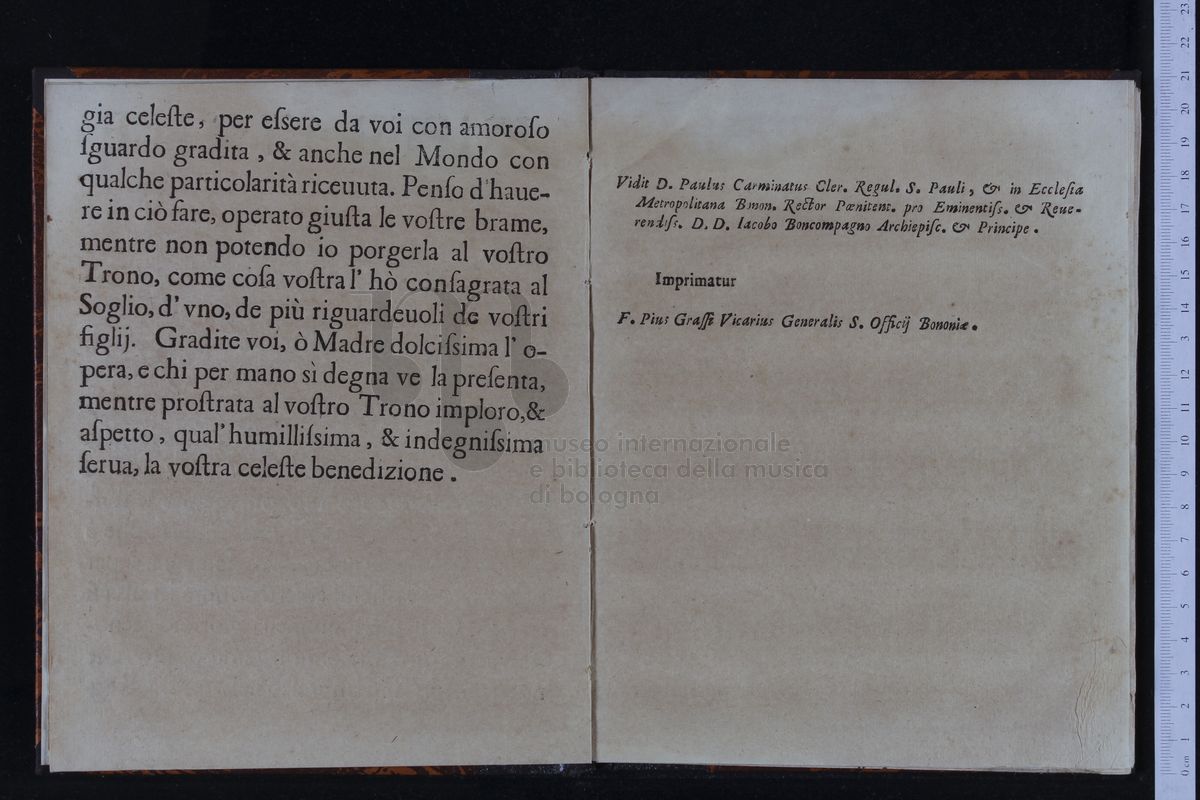 gia celeſte, per eſsere da voi con amoroſo
ſguardo gradita , & anche nel Mondo con
qualche particolarità riceuuta. Penſo d'haue-
re in ciò fare, operato giuſta le voſtre brame,
mentre non potendo io porgerla al voſtro
Trono, come coſa voſtra l' hò conſagrata al
Soglio, d' vno, de più riguardeuoli de voſtri
figlij. Gradite voi, ò Madre dolciſsima l' o-
pera, e chi per mano sì degna ve la preſenta,
mentre proſtrata al voſtro Trono imploro, &
aſpetto , qual' humilliſsima , & indegniſsima
ſerua, la voſtra celeſte benedizione .
Vidit D. Paulus Carminatus Cler. Regul. S. Pauli , & in Eccleſia
Metropolitana Bonon. Rector Pœnitent. pro Eminentiſs. & Reue-
rendiſs. D. D. Iacobo Boncompagno Archiepiſc. & Principe .
Imprimatur
F. Pius Graſſi Vicarius Generalis S. Officij Bononiæ .
museo internazionale
e biblioteca della musica
di bologna
0 cm 1 2 3 4 5 6 7 8 9 10 11 12 3 14 15 16 17 18 19 20 21 22 23